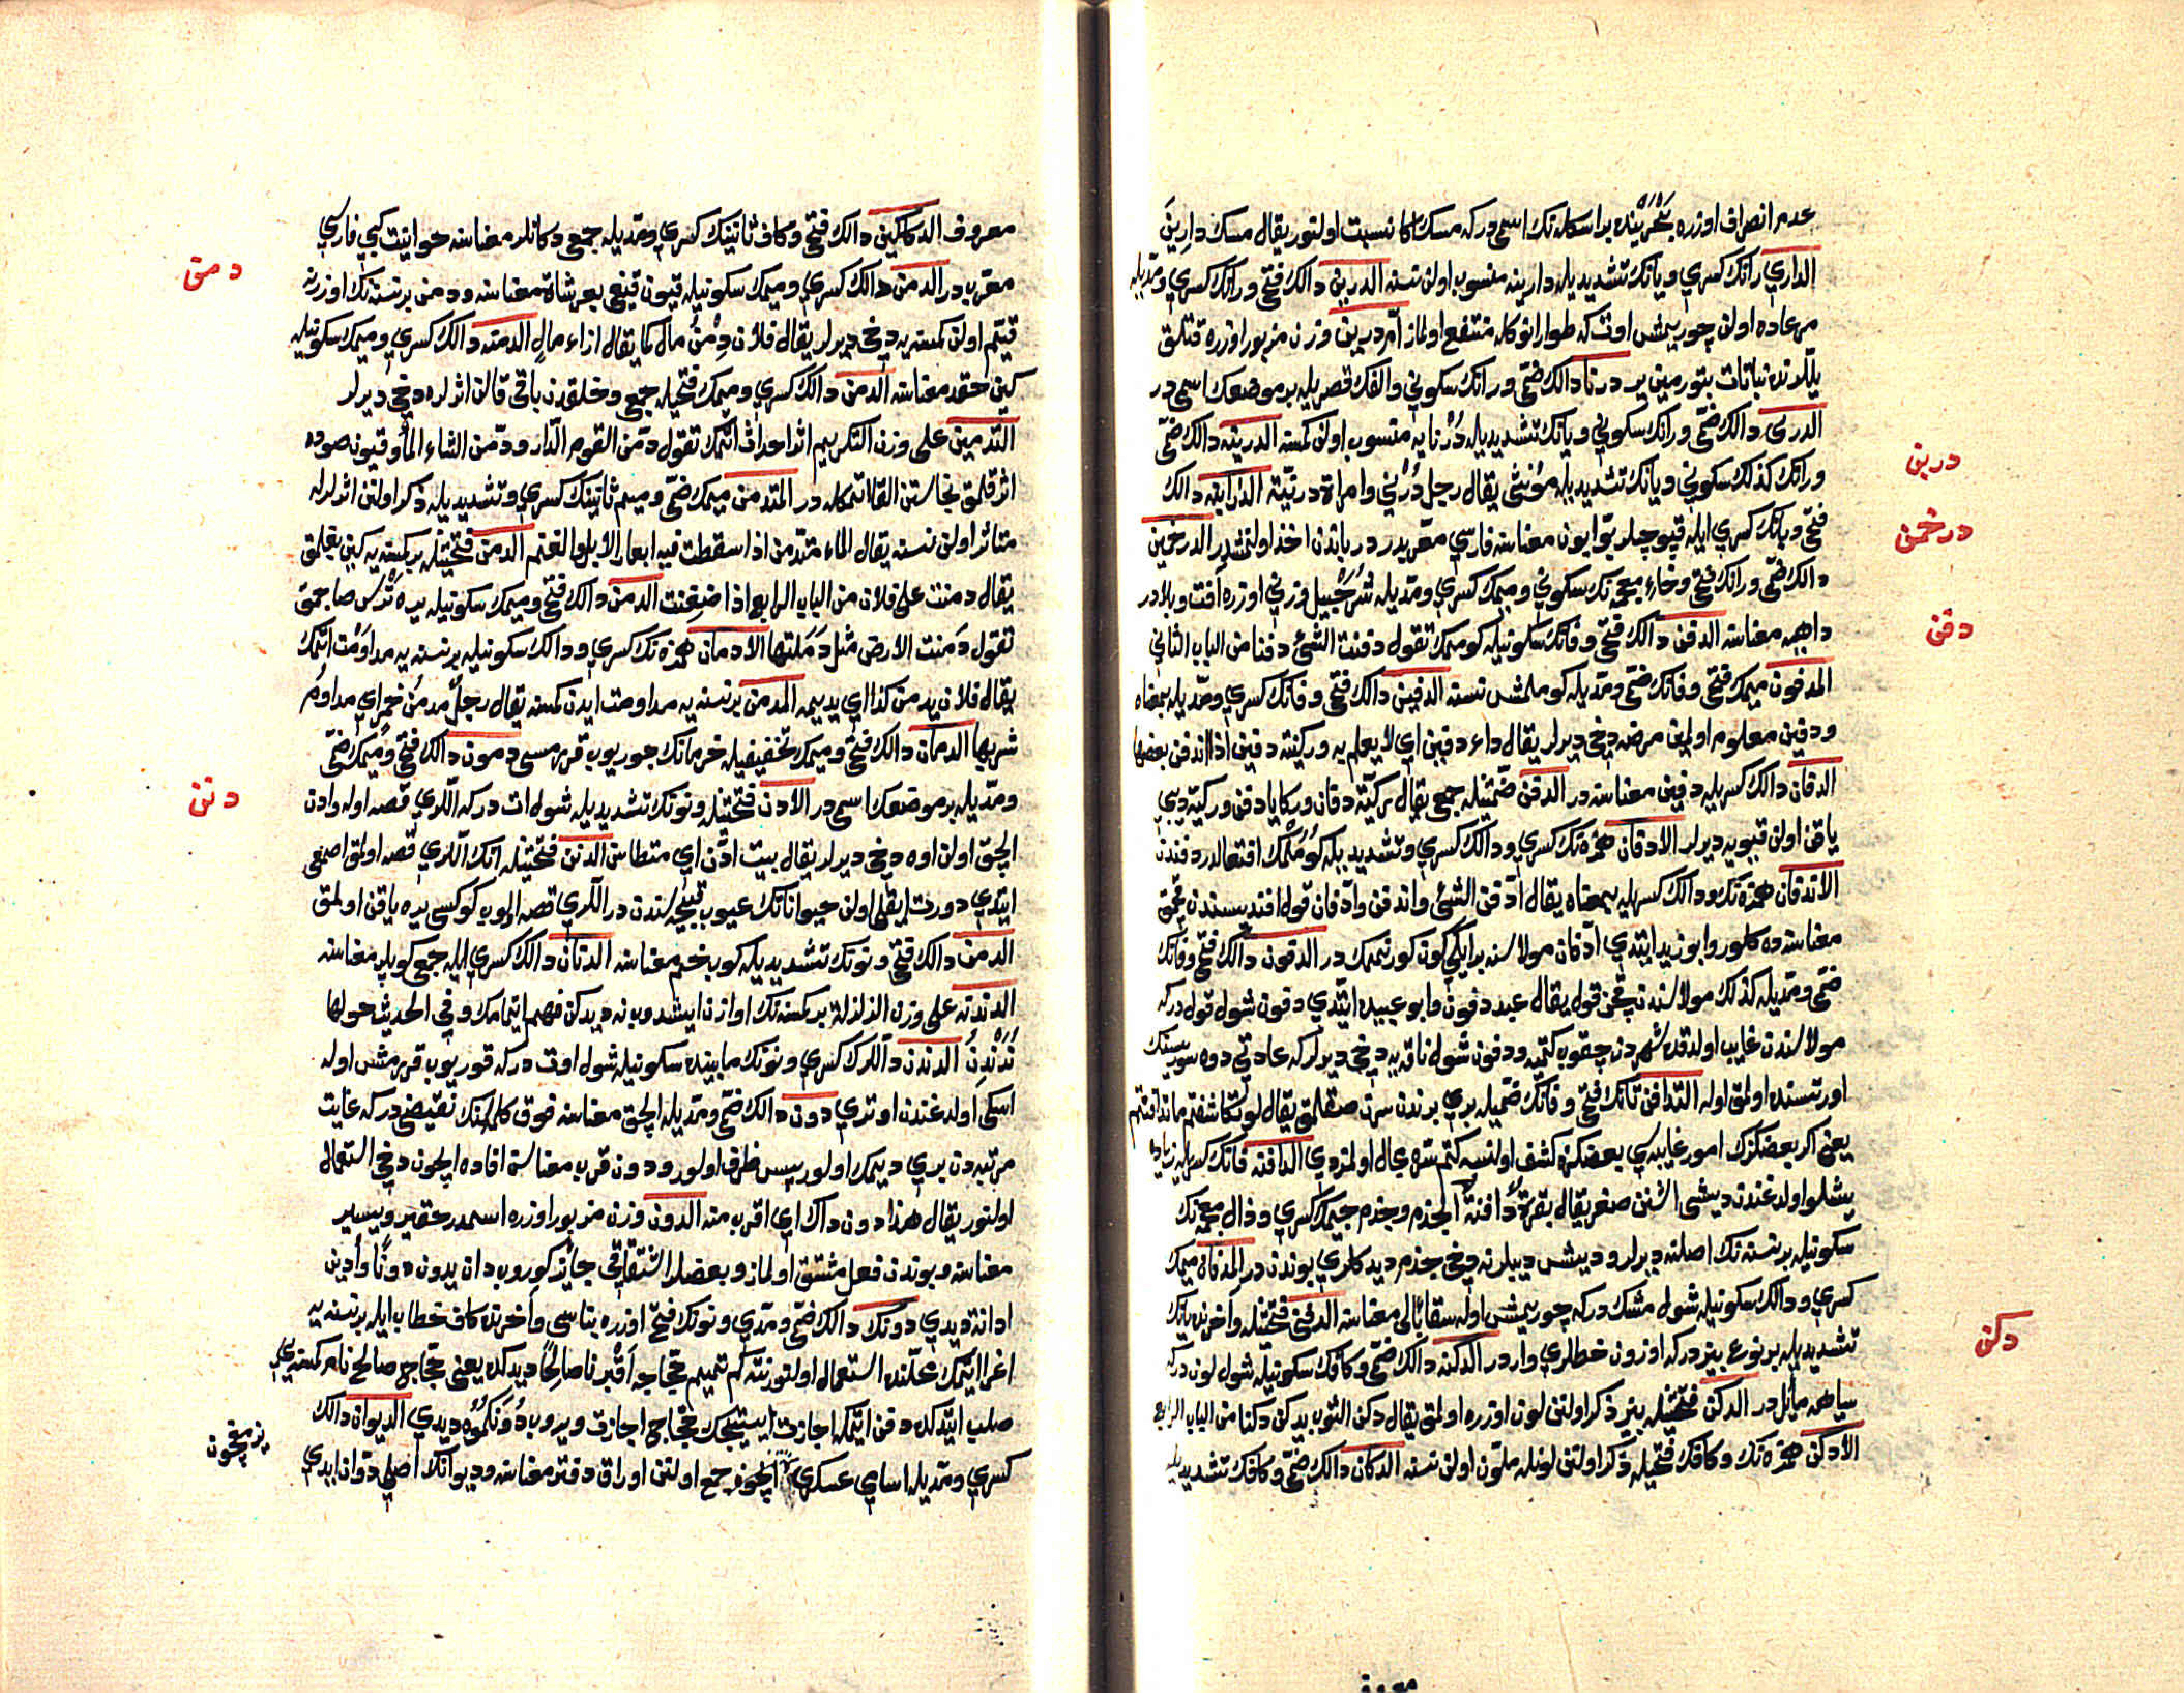 عدم انصراف اوزره بحرينده بر اسكله نك اسمى در كه مسك اكا نسبت اولنور يقال مسك دارين
الداري رانك كسرى ويانك تشديديله دارينه منسوب اولن نسنه الدرين دالك فتحى ورانك كسرى ومديله
اولن چوريمش اوت كه طوار انوكله منتفع اولماز ادرين وزن مزبور اوزره قتلق
ييللرنده نباتات بتورمين ير درنا دالك ضمى ورانك سكونى والفك قصريله بر موضعك اسمى در
الدرنى دالك ضمى ورانك سكونى ويانك تشديديله درنايه منسوب اولن كمسنه الدرنيه دالك ضمى
درين
ورانك كذلك سكونى ويانك تشديديله مؤنثى يقال رجل درنى وامراة درنية الدرابنه دالك
فتحى وبانك كسرى ايله قپوجيلر بوابون معناسنه فارسى معربدر درباندن اخذ اولنمشدر الدرخمين
درخمن
دالك ضمى ورانك فتحى وخاء معجمه نك سكونى وميمك كسرى ومديله شرحبيل وزنى اوزره افت وبلادر
داهيه معناسنه الدفن دالك فتحى وفانك سكونيله كوممك تقول دفنت الشئ دفنا من الباب الثانى
دفن
المدفون ميمك فتحى وفانك ضمى ومديله كوملمش نسنه الدفين دالك فتحى وفانك كسرى ومديله بمعناه
ودفين معلوم اولمين مرضه دخى ديرلر يقال داء دفين اى لا يعلم به وركية دفين اذا اندفن بعضها
الدفان دالك كسريله دفين معناسنه در الدفن ضمتينله جمعى يقال ركية دفان وركايا دفن وركيه ديبى
ياقن اولن قپويه ديرلر الادفان همزه نك كسرى ودالك كسرى وتشديديله كوملمك افتعالدر دفندن
الاندفان همزه نك ودالك كسريله بمعناه يقال ادفن الشئ واندفن وادفان قول افنديسندن قچمق
معناسنه ده كلور وابو زيد ايتدى ادفان مولاسنه بر ايكى كون كورنممك در الدفون دالك فتحى وفانك
ضمى ومديله كذلك مولاسندن قچن قول يقال عبد دفون وابو عبيده ايتدى دفون شول قول در كه
مولاسندن غايب اولدقده شهردن چقوب كتميه ودفون شول ناقه يه دخى ديرلر كه عادتى دوه سوريسنك
اورتسنده اولمق اوله التدافن تانك فتحى وفانك ضميله برى برندن سرى صقلمق يقال لو تكاشفتم ما تدافنتم
يعنى اكر بعضكزك امور غايبه سى بعضكزه كشف اولنسه كتم سر محال اولمزدى الدافنه فانك كسريله زياده
يشلو اولدغندن ديشى اشنن صغر يقال بقرة دافنة الجذم وجذم جيمك كسرى وذال معجمه نك
سكونيله بر نسنه نك اصلنه ديرلر وديش ديبلرنه دخى جذم ديدكلرى بوندن در المدفاة ميمك
كسرى ودالك سكونيله شول مشك در كه چوريمش اوله سقا بالى معناسنه الدفنى فتحتينله واخرنده يانك
تشديديله بر نوع بيزدر كه اوزون خطلرى واردر الدكنه دالك ضمى وكافك سكونيله شول لون در كه
دكن
سياهه مائل در الدكن فتحتينله بيز ذكر اولنن لون اوزره اولمق يقال دكن الثوب يدكن دكنا من الباب الرابع
الادكن همزه نك وكافك فتحيله ذكر اولنن لونيله ملون اولن نسنه الدكان دالك ضمى وكافك تشديديله
معروف
معروف الدكاكين دالك فتحى وكاف ثانينك كسرى ومديله جمعى دكانلر معناسنه حوانيت كبى فارسى
معربدر الدمن دالك كسرى وميمك سكونيله قيون قيغى بعر شاة معناسنه ودمن بر نسنه نك اوزرنه
دمن
قيم اولن كمسنه يه دخى ديرلر يقال فلان دمن مال كما يقال ازاء مال الدمنه دالك كسرى وميمك سكونيله
كين حقد معناسنه الدمن دالك كسرى وميمك فتحيله جمعى وخلقدن باقى قالن اثرلره دخى ديرلر
التدمين على وزن التكريم اثر احداث اتمك تقول دمن القوم الدار ودمن الشاء الماء وقيون صوده
اثر قلمق نجاستن القا اتمكله در المتدمن ميمك ضمى وميم ثانينك كسرى وتشديديله ذكر اولنن اثرلرله
متاثر اولن نسنه يقال الماء متدمن اذا سقطت فيه ابعار الابل والغنم الدمن فتحتينله بر كمسنه يه كين بغلمق
يقال دمنت على فلان من الباب الرابع اذا ضغنت الدمن دالك فتحى وميمك سكونيله يره ترس صاچمق
تقول دمنت الارض مثل دملتها الادمان همزه نك كسرى ودالك سكونيله بر نسنه يه مداومت اتمك
يقال فلان يدمن كذا اى يديمه المدمن بر نسنه يه مداومت ايدن كمسنه يقال رجل مدمن خمر اى مداوم
شربها الدمان دالك فتحى وميمك تخفيفيله خرمانك چوريوب قررمسى دمون دالك فتحى وميمك ضمى
ومديله بر موضعك اسمى در الادن فتحتينله ونونك تشديديله شول ات در كه اللرى قصه اوله وادن
دنن
الچق اولن اوه دخى ديرلر يقال بيت ادن اى متطامن الدنن فتحتينله اتك اللرى قصه اولمق اصمعى
ايتدى دورت ايقلى اولن حيواناتك عيوب قبيحه سندن در اللرى قصه اولوب كوكسى يره ياقن اولمق
الدن دالك فتحى ونونك تشديديله كوب خم معناسنه الدنان دالك كسرى ايله جمعى كوپلر معناسنه
الدندنه على وزن الزلزلة بر كمسنه نك اوازن ايشدوب نه ديدكن فهم ايتمامك وفى الحديث حولها
ندندن الدندن داللرك كسرى ونونك مابينده سكونيله شول اوت در كه قوريوب قررمش اوله
اسكى اولدغندن اوتورى دون دالك ضمى ومديله الچق معناسنه فوق كلمه سنك نقيضى در كه غايت
مرتبه دن برى ديمك اولور پس ظرف اولور ودون قرب معناسن افاده ايچون دخى استعمال
اولنور يقال هذا دون ذاك اى اقرب منه الدون وزن مزبور اوزره اسمدر حقير ويسير
معناسنه وبوندن فعل مشتق اولماز وبعضلر اشتقاقى جائز كوروب دان يدون دونا وادين
ادانة ديدى دونك دالك ضمى ومدى ونونك فتحى اوزره بناسى واخرنده كاف خطاب ايله بر نسنه يه
اغرا اتمك محلنده استعمال اولنور نته كم تميم حجاجه اقبرنا صالحا ديدكده يعنى حجاج صالح نام كمسنه يى
صلب ايتدكده دفن اتمكه اجازت ايستيجك حجاج اجازت ويروب دونكموه ديدى الديوان دالك
كسرى ومديله اسامئ عسكرى ايچون جمع اولنن اوراق دفتر معناسنه وديوانك اصلى دوان ايدى
يزمغيچون